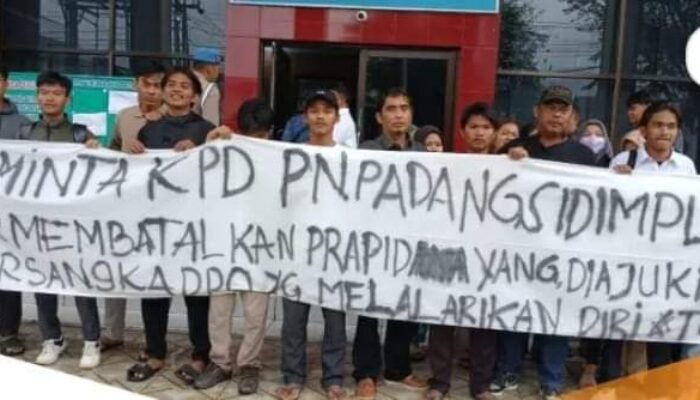 MINTA KPD PN PADANGSIDIMPU
MEMBATALKAN PRAPID YANG DIAJUK
RSANGKA DPO YG MELALARIKAN DIRI #T